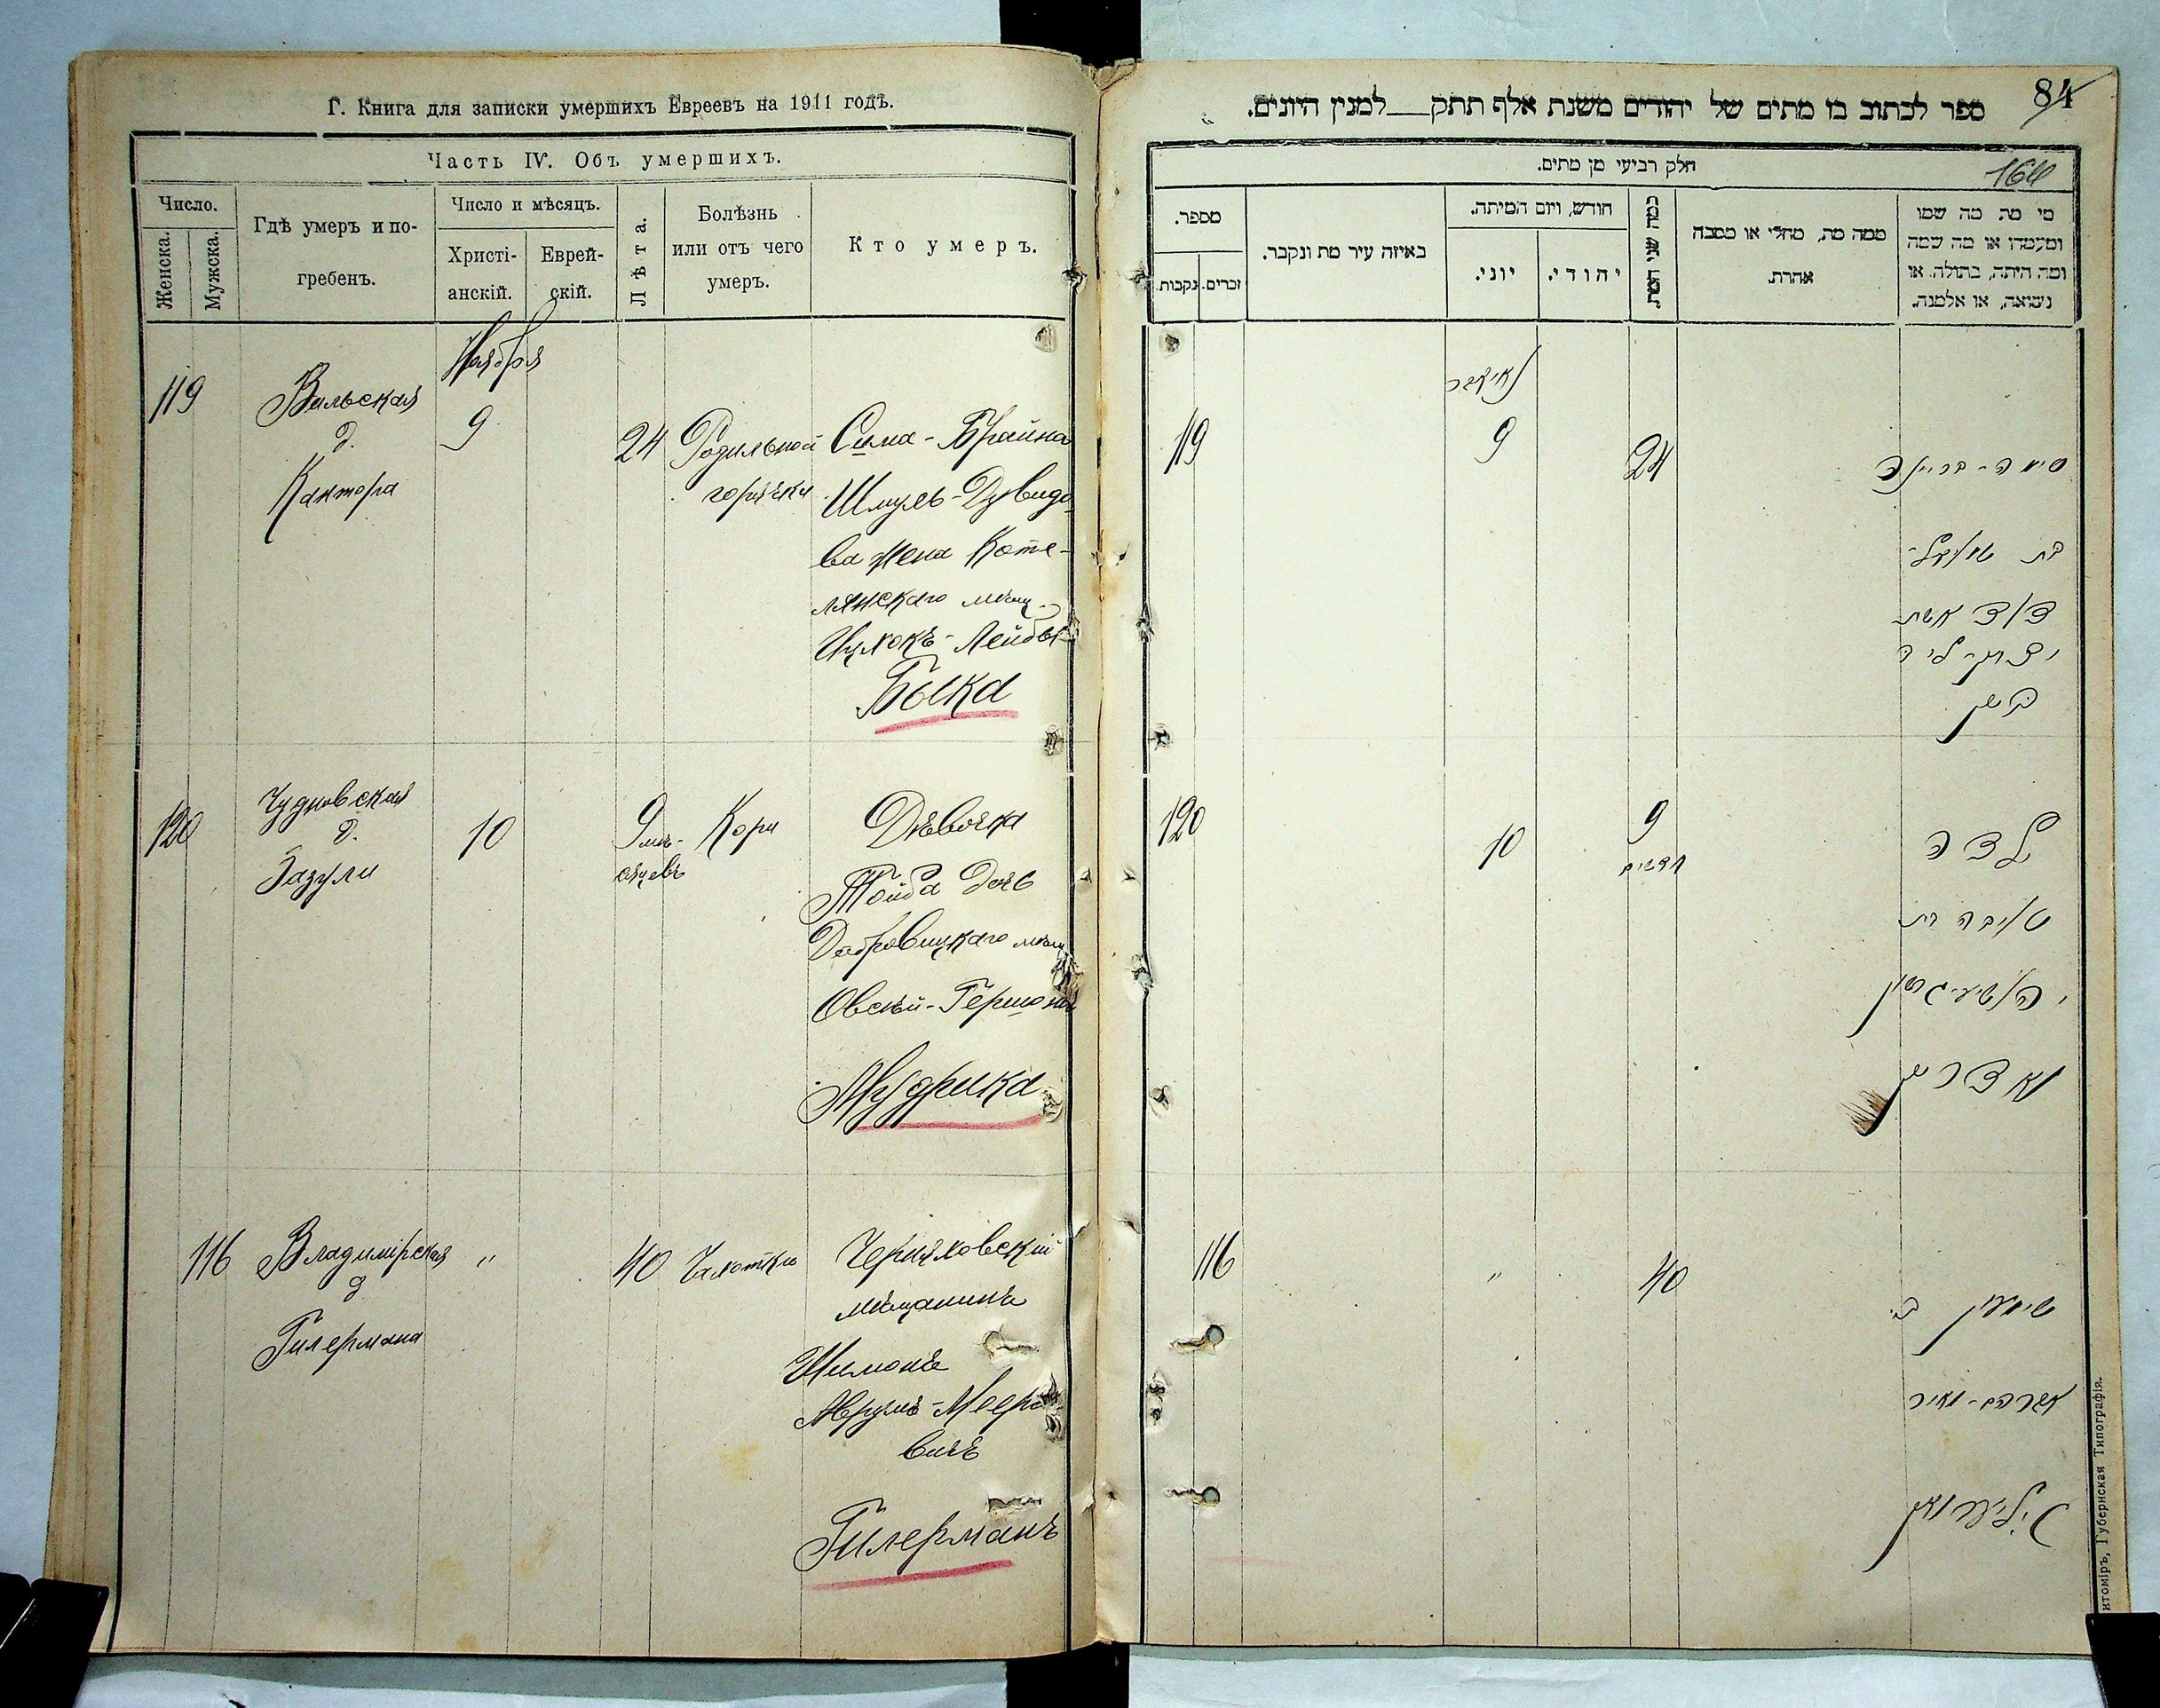 Г. Книга для записки умершихъ Евреевъ на 1911 годъ.
Часть IV. Объ умершихъ.
Число.
Женска.
Мужска.
Гдѣ умеръ и по-
гребенъ.
Число и мѣсяцъ.
Христі-
анскій.
Еврей-
скій.
Лѣта.
Болѣзнь
или отъ чего
умеръ.
Кто умеръ.
Ноября
119
Вильская
д.
Кантора
9
24
Родильной
горячки
Сима-Брайна
Шмуль-Дувидо-
ва жена Коте-
лянскаго мѣщ.
Ицхокъ-Лейбы
Быка
120
Чудновская
д.
Зазули
10
9 мѣ-
сяцевъ
Кори
Дѣвочка
Тойба дочь
Домбровицкаго мѣщ.
Овсѣй-Гершона
Мудрика
116
Владимірская
д
Гилермана
"
40
Чахотки
Черняховскій
мѣщанинъ
Шимонъ
Аврумъ-Мееро-
вичъ
Гилерманъ
84
ספר לכתוב בו מתים של יהודים משנת אלף תתק למנין היונים.
164
חלק רביעי מן מתים.
מספר.
נקבות.
זכרים.
באיזה עיר מת ונקבר.
חודש, ויום המיתה.
יוני.
יהודי.
כמה שני המת.
ממה מת, מחלי או מסבה
אחרת.
מי מת מה שמו
ומעמדו או מה שמה
ומה היתה, בתולה או
נשואה, או אלמנה.
119
9
24
סימה-בריינה
בת שמואל-
דוד אשת
יצחק-ליב
ביק
120
10
9
חדשים
ילדה
טויבה בת
יהושע-גרשון
מודריק
116
"
40
שמעון ב.
אברהם-מאיר
גילערמאן
итоміръ, Губернская Типографія.